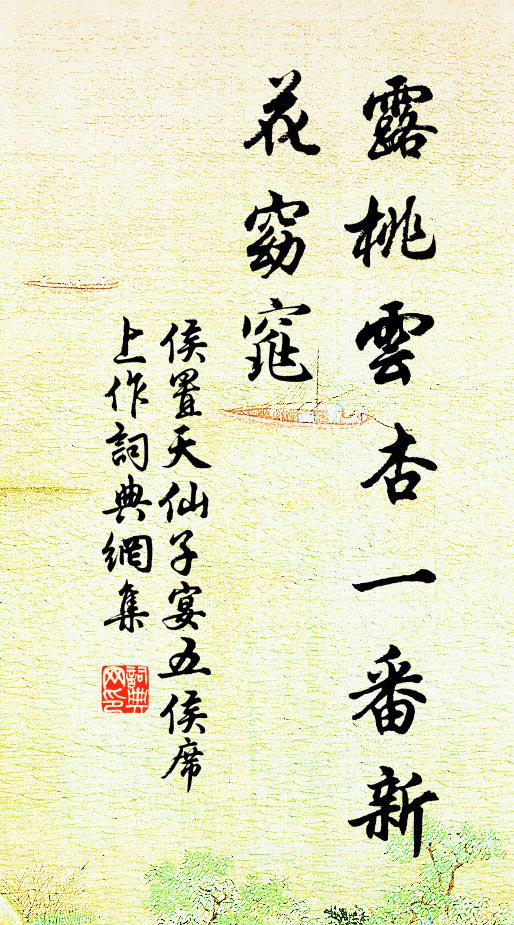 露桃雲杏一番新
花窈窕
侯置天仙子宴五侯席
上作詞典網集
詞典
网印